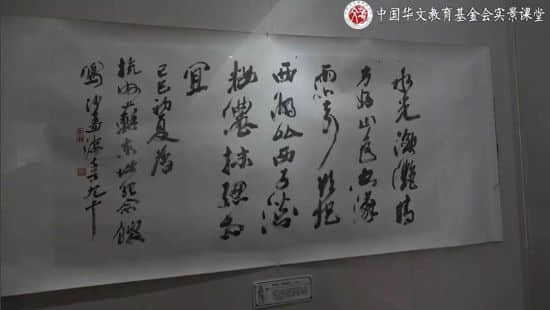 中国华文教育基金会实景课堂
水光瀲灩晴
方好山色空濛
雨亦奇欲把
西湖比西子淡
粧濃抹總相
宜
己巳初夏為
杭州蘇東坡紀念館
寫沙孟海年九十